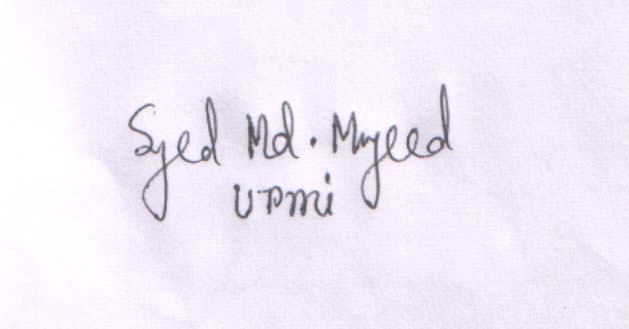 Syed Md. Mujeed
UPmi